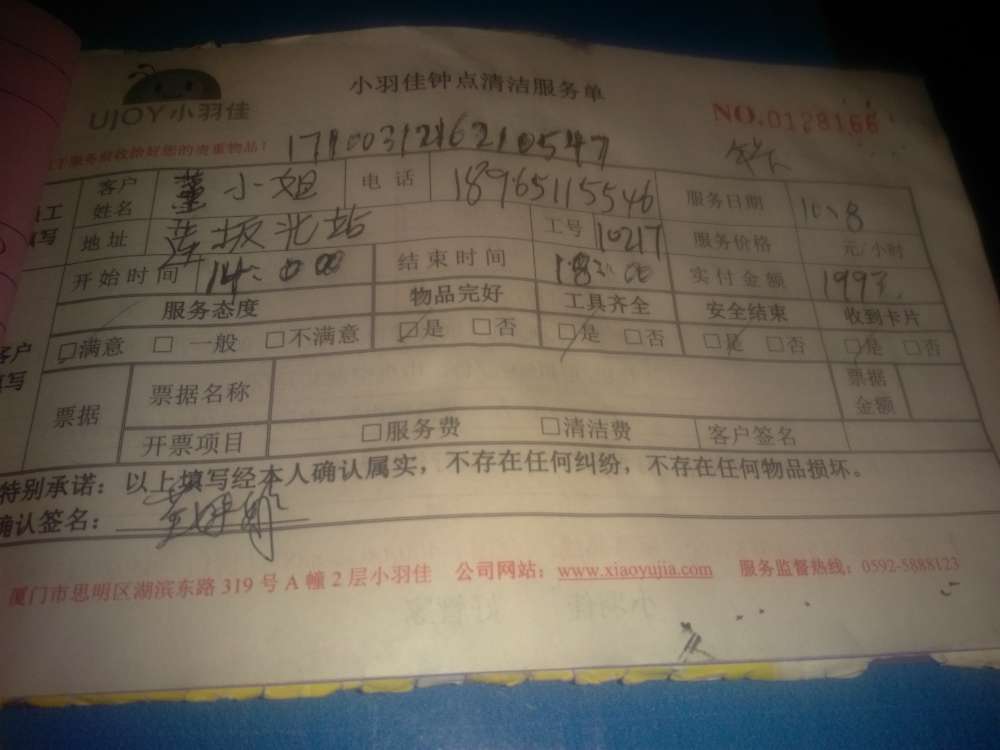 UJOY小羽佳
小羽佳钟点清洁服务单
NO.0128166
服务前收拾好您的贵重物品!
1710031216210547
客户姓名 董小姐 电话 18965115546 服务日期 10.8
地址 北站 工号 10217 服务价格 元/小时
开始时间 14:00 结束时间 18:00 实付金额 199元
服务态度 物品完好 工具齐全 安全结束 收到卡片
客户填写 □满意 □一般 □不满意 □是 □否 □是 □否 □是 □否 □是 □否
票据 票据名称 票据金额
开票项目 □服务费 □清洁费 客户签名
特别承诺:以上填写经本人确认属实,不存在任何纠纷,不存在任何物品损坏。
确认签名:
厦门市思明区湖滨东路319号A幢2层小羽佳 公司网站:www.xiaoyujia.com 服务监督热线:0592-5888123